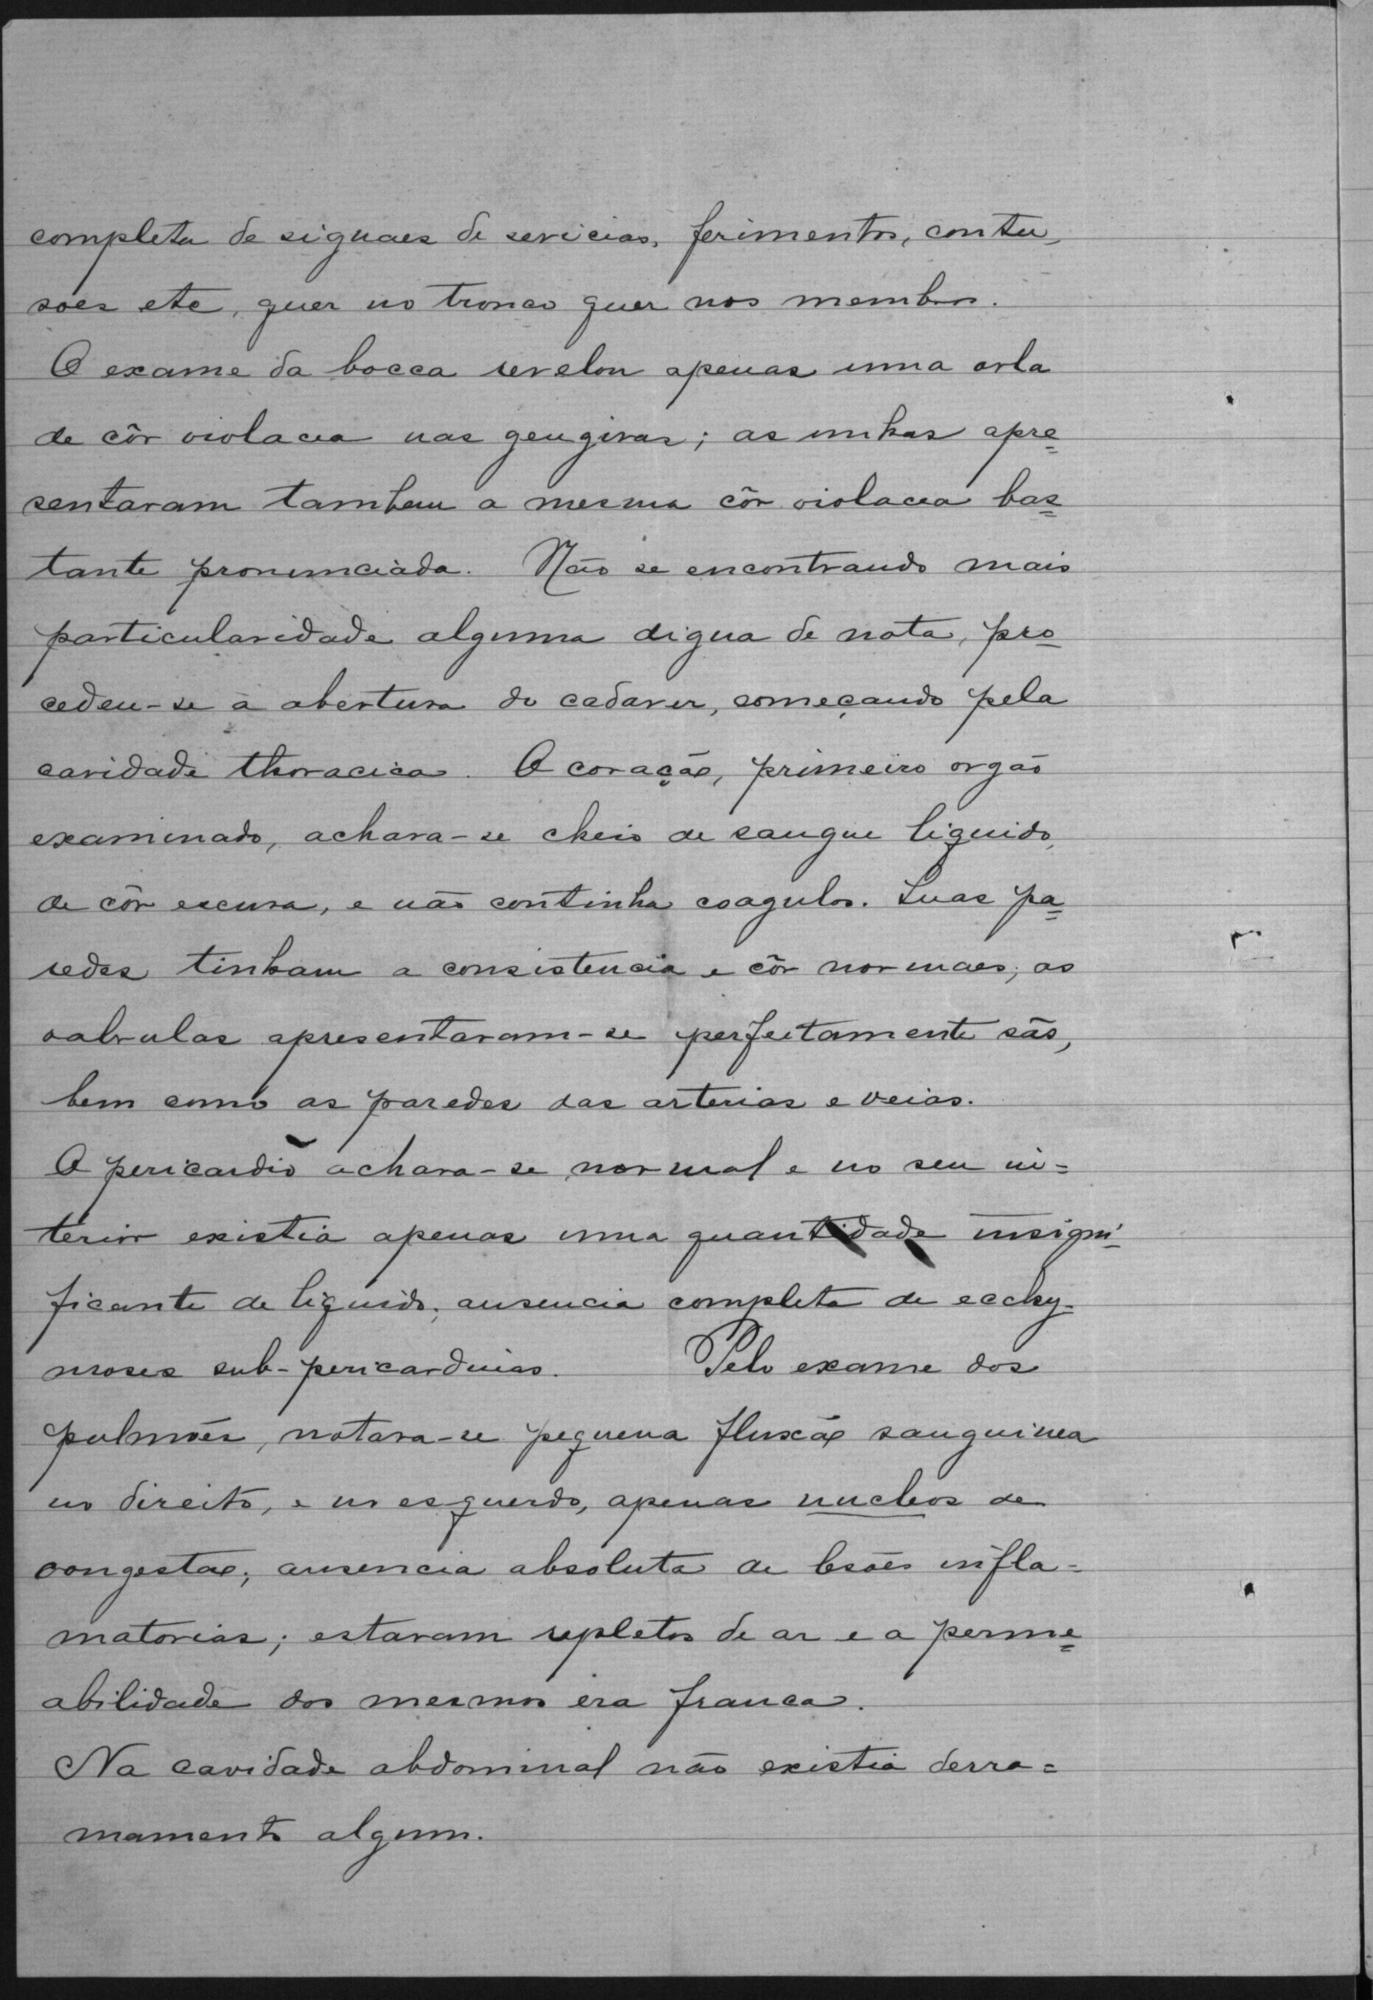 completa de signaes de sevicias, ferimentos, contu-
soes etc, quer no tronco quer nos membros.
O exame da bocca revelou apenas uma orla
de côr violacea nas gengivas; as unhas apre=
sentaram tambem a mesma côr violacea bas=
tante pronunciada. Não se encontrando mais
particularidade alguma digna de nota, pro-
cedeu-se à abertura do cadaver, começando pela
cavidade thoracica. O coração, primeiro orgão
examinado, achava-se cheio de sangue liquido,
de côr escura, e não continha coagulos. Suas pa=
redes tinham a consistencia e côr normaes; as
valvulas apresentaram-se perfeitamente sãs,
bem como as paredes das arterias e veias.
O pericardio achava-se normal e no seu in=
terior existia apenas uma quantidade insigni=
ficante de liquido; ausencia completa de ecchy-
moses sub-pericardicas. Pelo exame dos
pulmões, notava-se pequena fluxão sanguinea
no direito, e no esquerdo, apenas nucleos de
congestão; ausencia absoluta de lesões infla=
matorias; estavam repletos de ar e a perme=
abilidade dos mesmos era franca.
Na cavidade abdominal não existia derra=
mamento algum.